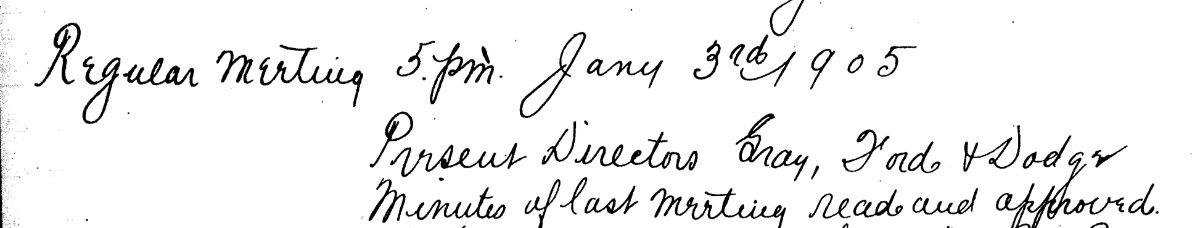 Regular Meeting 5. pm. Jany 3rd 1905
Present Directors Gray, Ford & Dodge
Minutes of last meeting read and approved.